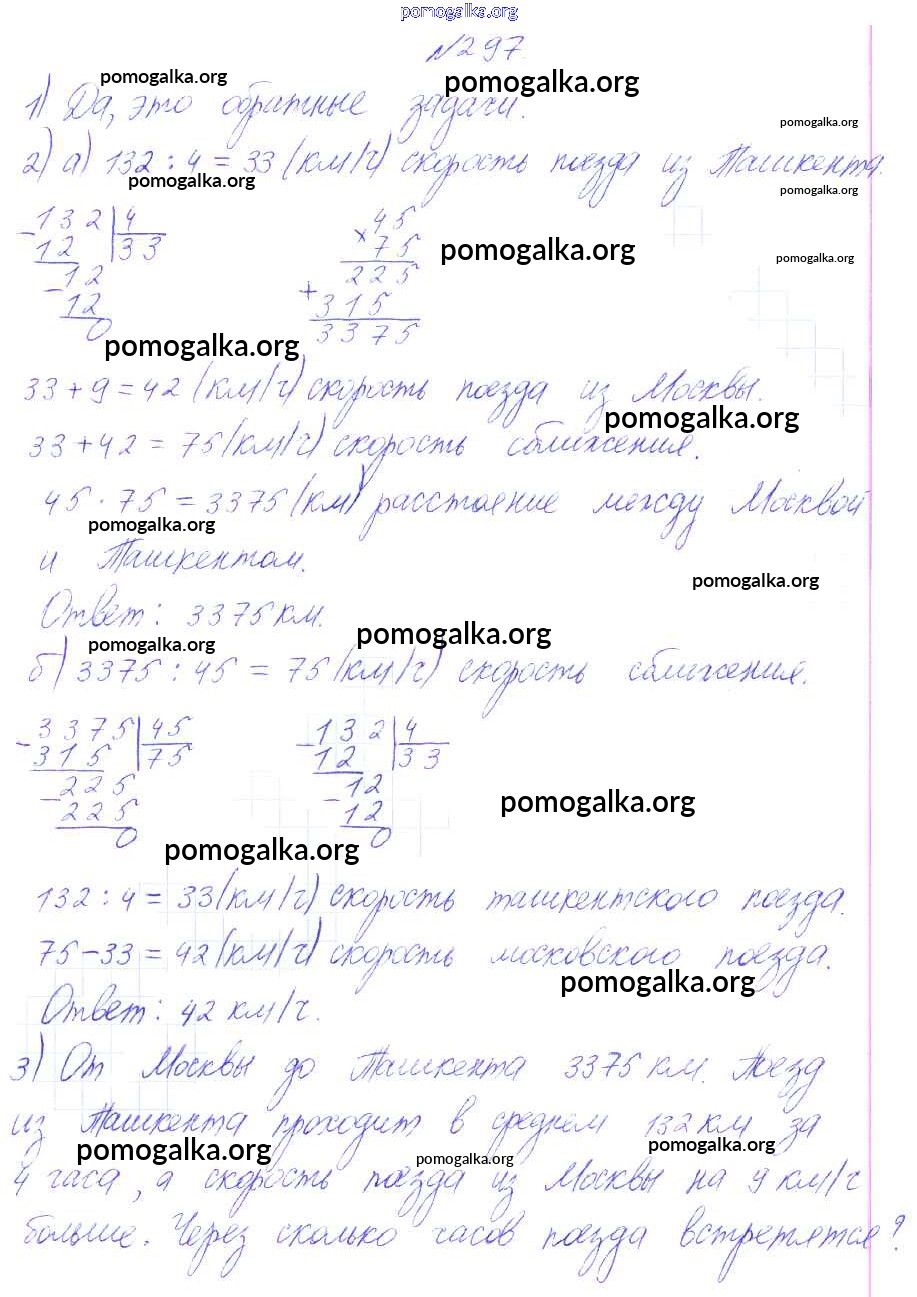 pomogalka.org
№297.
pomogalka.org pomogalka.org
1) Да, это обратные задачи.
pomogalka.org
2) а) 132 : 4 = 33 (км/ч) скорость поезда из Ташкента.
pomogalka.org pomogalka.org
- 132 | 4
12 | 33
- 12
12
0
× 45
75
225
+ 315
3375
pomogalka.org pomogalka.org
pomogalka.org
33 + 9 = 42 (км/ч) скорость поезда из Москвы.
pomogalka.org
33 + 42 = 75 (км/ч) скорость сближения.
45 · 75 = 3375 (км) расстояние между Москвой
pomogalka.org
и Ташкентом.
pomogalka.org
Ответ: 3375 км.
pomogalka.org pomogalka.org
б) 3375 : 45 = 75 (км/ч) скорость сближения.
- 3375 | 45
315 | 75
- 225
225
0
- 132 | 4
12 | 33
- 12
12
0
pomogalka.org
pomogalka.org
132 : 4 = 33 (км/ч) скорость ташкентского поезда.
75 - 33 = 42 (км/ч) скорость московского поезда.
pomogalka.org
Ответ: 42 км/ч.
3) От Москвы до Ташкента 3375 км. Поезд
из Ташкента проходит в среднем 132 км за
pomogalka.org pomogalka.org pomogalka.org
4 часа, а скорость поезда из Москвы на 9 км/ч
больше. Через сколько часов поезда встретятся?